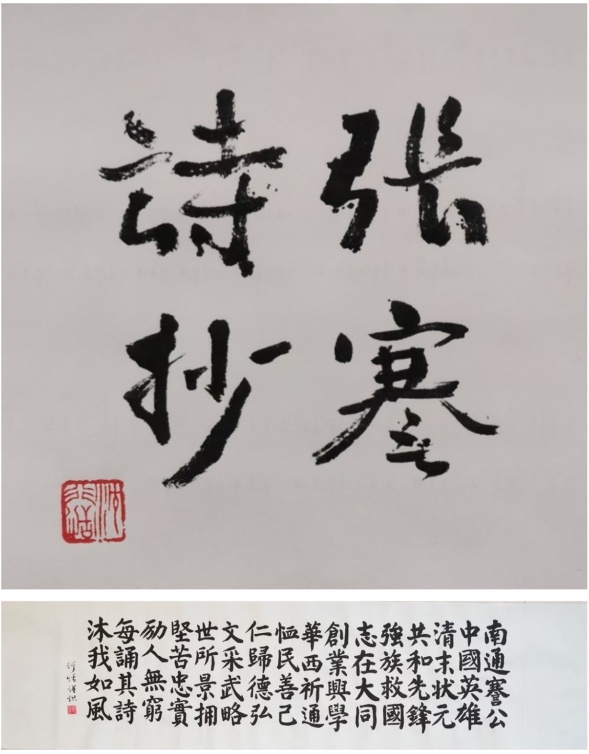 張謇
詩抄
南通謇公
中國英雄
清末状元
共和先鋒
強族救國
志在大同
創業興學
華西祈通
恤民善己
仁歸德弘
文采武略
世所景拥
堅苦忠實
励人無窮
每誦其詩
沐我如風